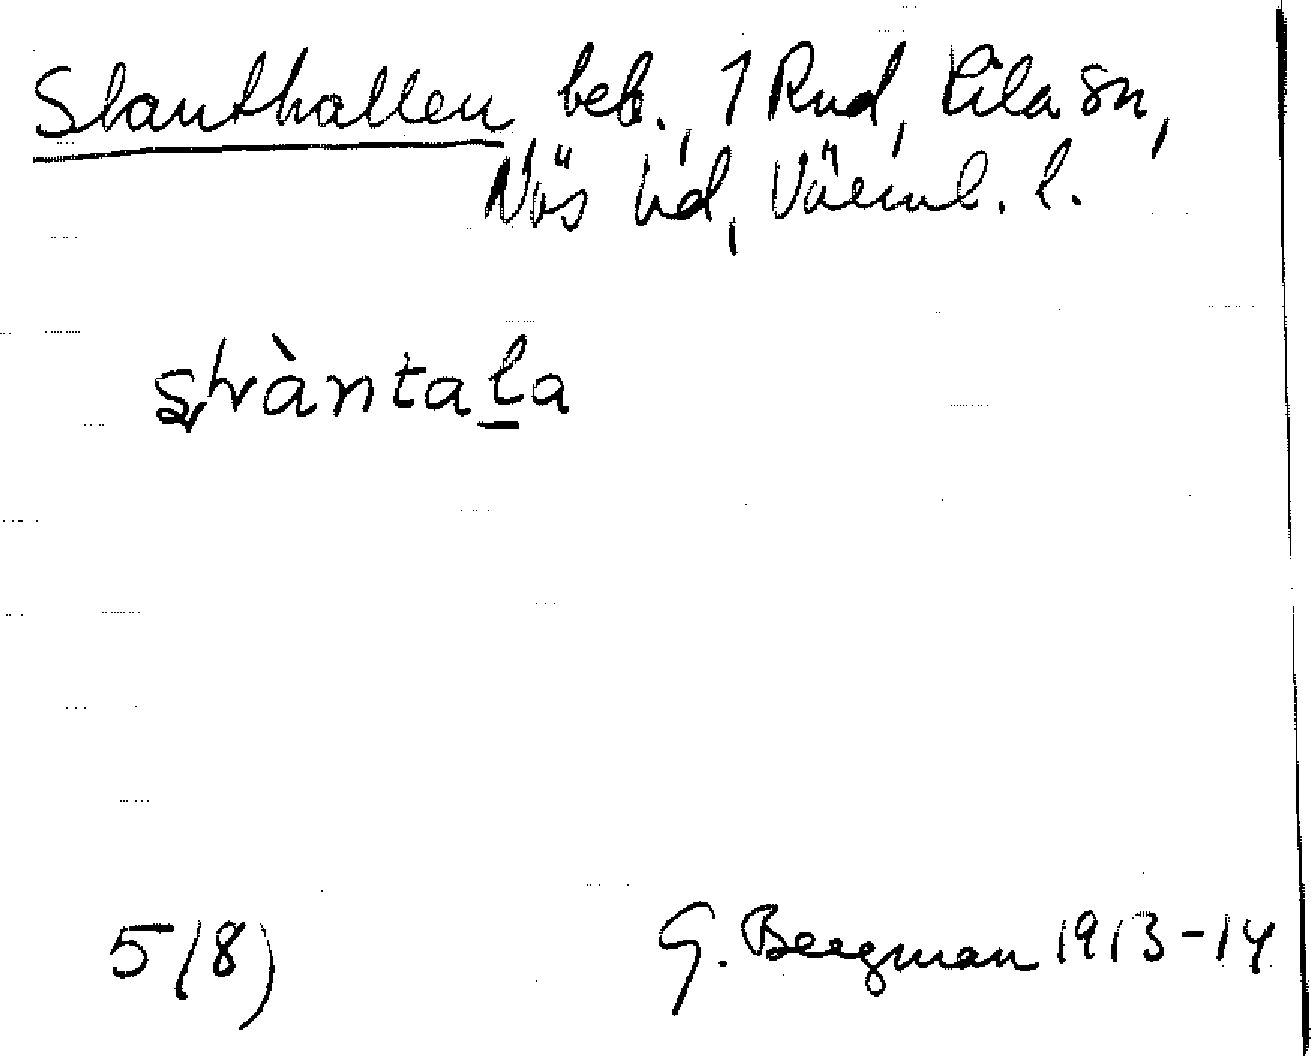 Slanthallen beb., 1 Rud, Lila sn,
Näs hd, Värml. l.
5 (8)
G. Bergman 1913-14